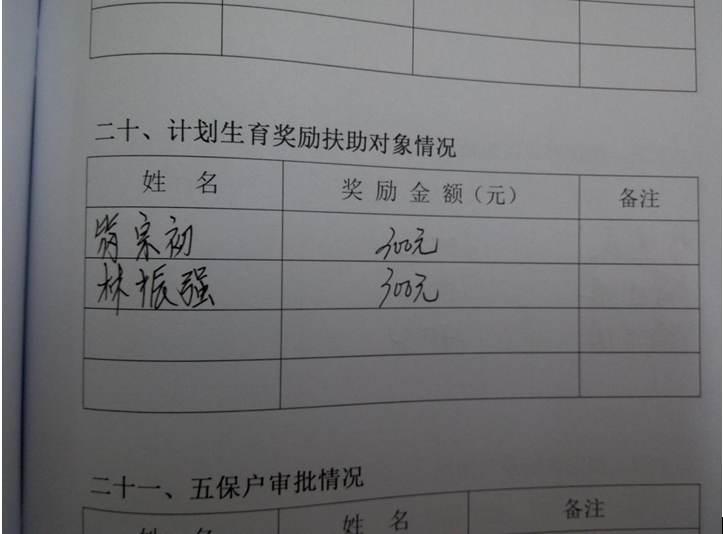 二十、计划生育奖励扶助对象情况
姓 名 奖励金额(元) 备注
肖宗初 300元
林振强 300元
二十一、五保户审批情况
姓 名 姓 名 备注